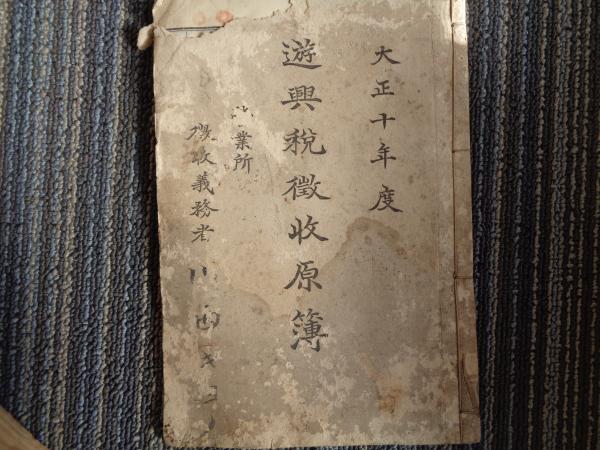 大正十年度
遊興税徴收原簿
業所
徴收義務者